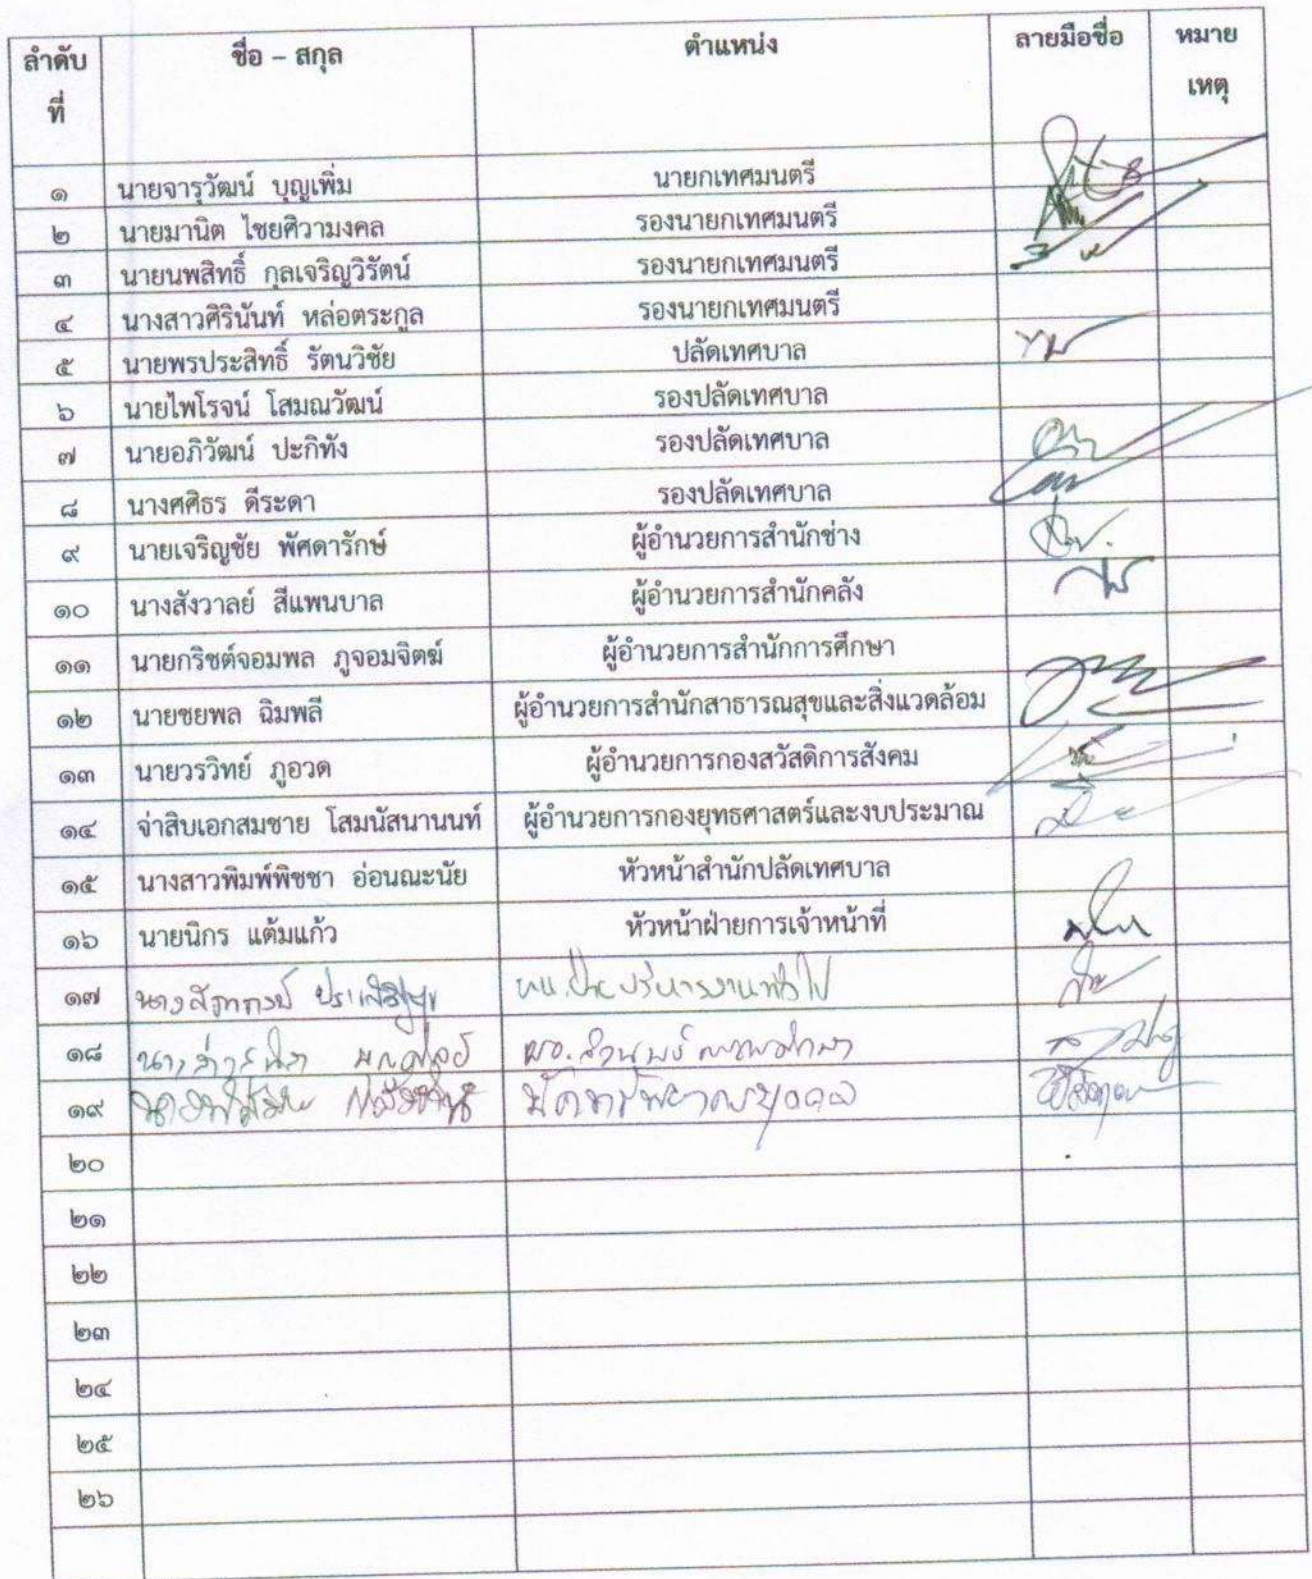 ลำดับที่ ชื่อ – สกุล ตำแหน่ง ลายมือชื่อ หมายเหตุ
๑ นายจารุวัฒน์ บุญเพิ่ม นายกเทศมนตรี
๒ นายมานิต ไชยศิวามงคล รองนายกเทศมนตรี
๓ นายนพสิทธิ์ กุลเจริญวิรัตน์ รองนายกเทศมนตรี
๔ นางสาวศิรินันท์ หล่อตระกูล รองนายกเทศมนตรี
๕ นายพรประสิทธิ์ รัตนวิชัย ปลัดเทศบาล
๖ นายไพโรจน์ โสมณวัฒน์ รองปลัดเทศบาล
๗ นายอภิวัฒน์ ปะกิทัง รองปลัดเทศบาล
๘ นางศศิธร ดีระดา รองปลัดเทศบาล
๙ นายเจริญชัย พัศดารักษ์ ผู้อำนวยการสำนักช่าง
๑๐ นางสังวาลย์ สีแพนบาล ผู้อำนวยการสำนักคลัง
๑๑ นายกริชต์จอมพล ภูจอมจิตฆ์ ผู้อำนวยการสำนักการศึกษา
๑๒ นายชยพล ฉิมพลี ผู้อำนวยการสำนักสาธารณสุขและสิ่งแวดล้อม
๑๓ นายวรวิทย์ ภูอวด ผู้อำนวยการกองสวัสดิการสังคม
๑๔ จ่าสิบเอกสมชาย โสมนัสนานนท์ ผู้อำนวยการกองยุทธศาสตร์และงบประมาณ
๑๕ นางสาวพิมพ์พิชชา อ่อนณะนัย หัวหน้าสำนักปลัดเทศบาล
๑๖ นายนิกร แต้มแก้ว หัวหน้าฝ่ายการเจ้าหน้าที่
๑๗ หน.ฝ่ายบริหารงานทั่วไป
๑๘
๑๙ นักทรัพยากรบุคคล
๒๐
๒๑
๒๒
๒๓
๒๔
๒๕
๒๖